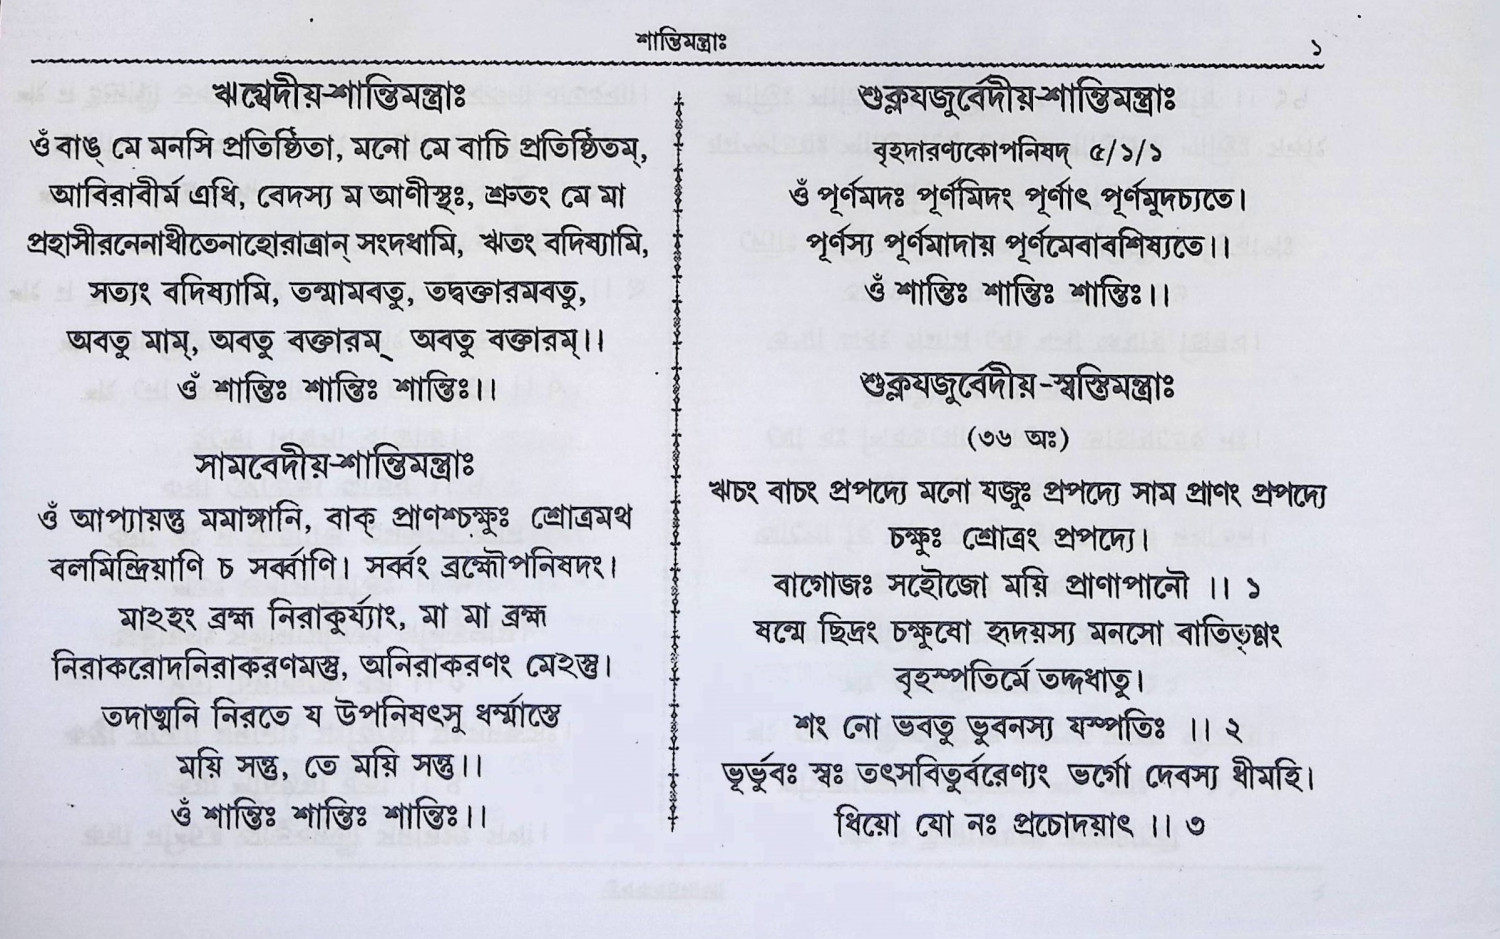 শান্তিমন্ত্রাঃ
১
ঋগ্বেদীয়-শান্তিমন্ত্রাঃ
ওঁ বাঙ্ মে মনসি প্রতিষ্ঠিতা, মনো মে বাচি প্রতিষ্ঠিতম্,
আবিরাবীর্ম এধি, বেদস্য ম আণীস্থঃ, শ্রুতং মে মা
প্রহাসীরনেনাধীতেনাহোরাত্রান্ সংদধামি, ঋতং বদিষ্যামি,
সত্যং বদিষ্যামি, তন্মামবতু, তদ্বক্তারমবতু,
অবতু মাম্, অবতু বক্তারম্ অবতু বক্তারম্।।
ওঁ শান্তিঃ শান্তিঃ শান্তিঃ।।
সামবেদীয়-শান্তিমন্ত্রাঃ
ওঁ আপ্যায়ন্তু মমাঙ্গানি, বাক্ প্রাণশ্চক্ষুঃ শ্রোত্রমথ
বলমিন্দ্রিয়াণি চ সর্ব্বাণি। সর্ব্বং ব্রহ্মৌপনিষদং।
মাঽহং ব্রহ্ম নিরাকুর্য্যাং, মা মা ব্রহ্ম
নিরাকরোদনিরাকরণমস্তু, অনিরাকরণং মেঽস্তু।
তদাত্মনি নিরতে য উপনিষৎসু ধর্ম্মাস্তে
ময়ি সন্তু, তে ময়ি সন্তু।।
ওঁ শান্তিঃ শান্তিঃ শান্তিঃ।।
শুক্লযজুর্বেদীয়-শান্তিমন্ত্রাঃ
বৃহদারণ্যকোপনিষদ্ ৫/১/১
ওঁ পূর্ণমদঃ পূর্ণমিদং পূর্ণাৎ পূর্ণমুদচ্যতে।
পূর্ণস্য পূর্ণমাদায় পূর্ণমেবাবশিষ্যতে।।
ওঁ শান্তিঃ শান্তিঃ শান্তিঃ।।
শুক্লযজুর্বেদীয়-স্বস্তিমন্ত্রাঃ
(৩৬ অঃ)
ঋচং বাচং প্রপদ্যে মনো যজুঃ প্রপদ্যে সাম প্রাণং প্রপদ্যে
চক্ষুঃ শ্রোত্রং প্রপদ্যে।
বাগোজঃ সহৌজো ময়ি প্রাণাপানৌ ।। ১
ষন্মে ছিদ্রং চক্ষুষো হৃদয়স্য মনসো বাতিতৃণ্ণং
বৃহস্পতির্মে তদ্দধাতু।
শং নো ভবতু ভুবনস্য যস্পতিঃ ।। ২
ভূর্ভুবঃ স্বঃ তৎসবিতুর্বরেণ্যং ভর্গো দেবস্য ধীমহি।
ধিয়ো যো নঃ প্রচোদয়াৎ ।। ৩